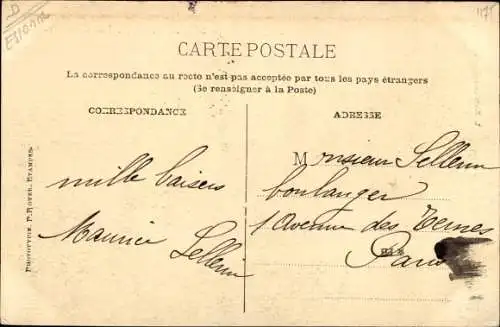 D
ESSONNE
1175
CARTE POSTALE
La correspondance au recto n'est pas acceptée par tous les pays étrangers
(Se renseigner à la Poste)
CORRESPONDANCE
ADRESSE
Monsieur Sellenn
mille baisers
boulanger
1 Avenue des Ternes
Maurice Sellenn
Paris
PHOTOTYPIE P. ROYER, ETAMPES.